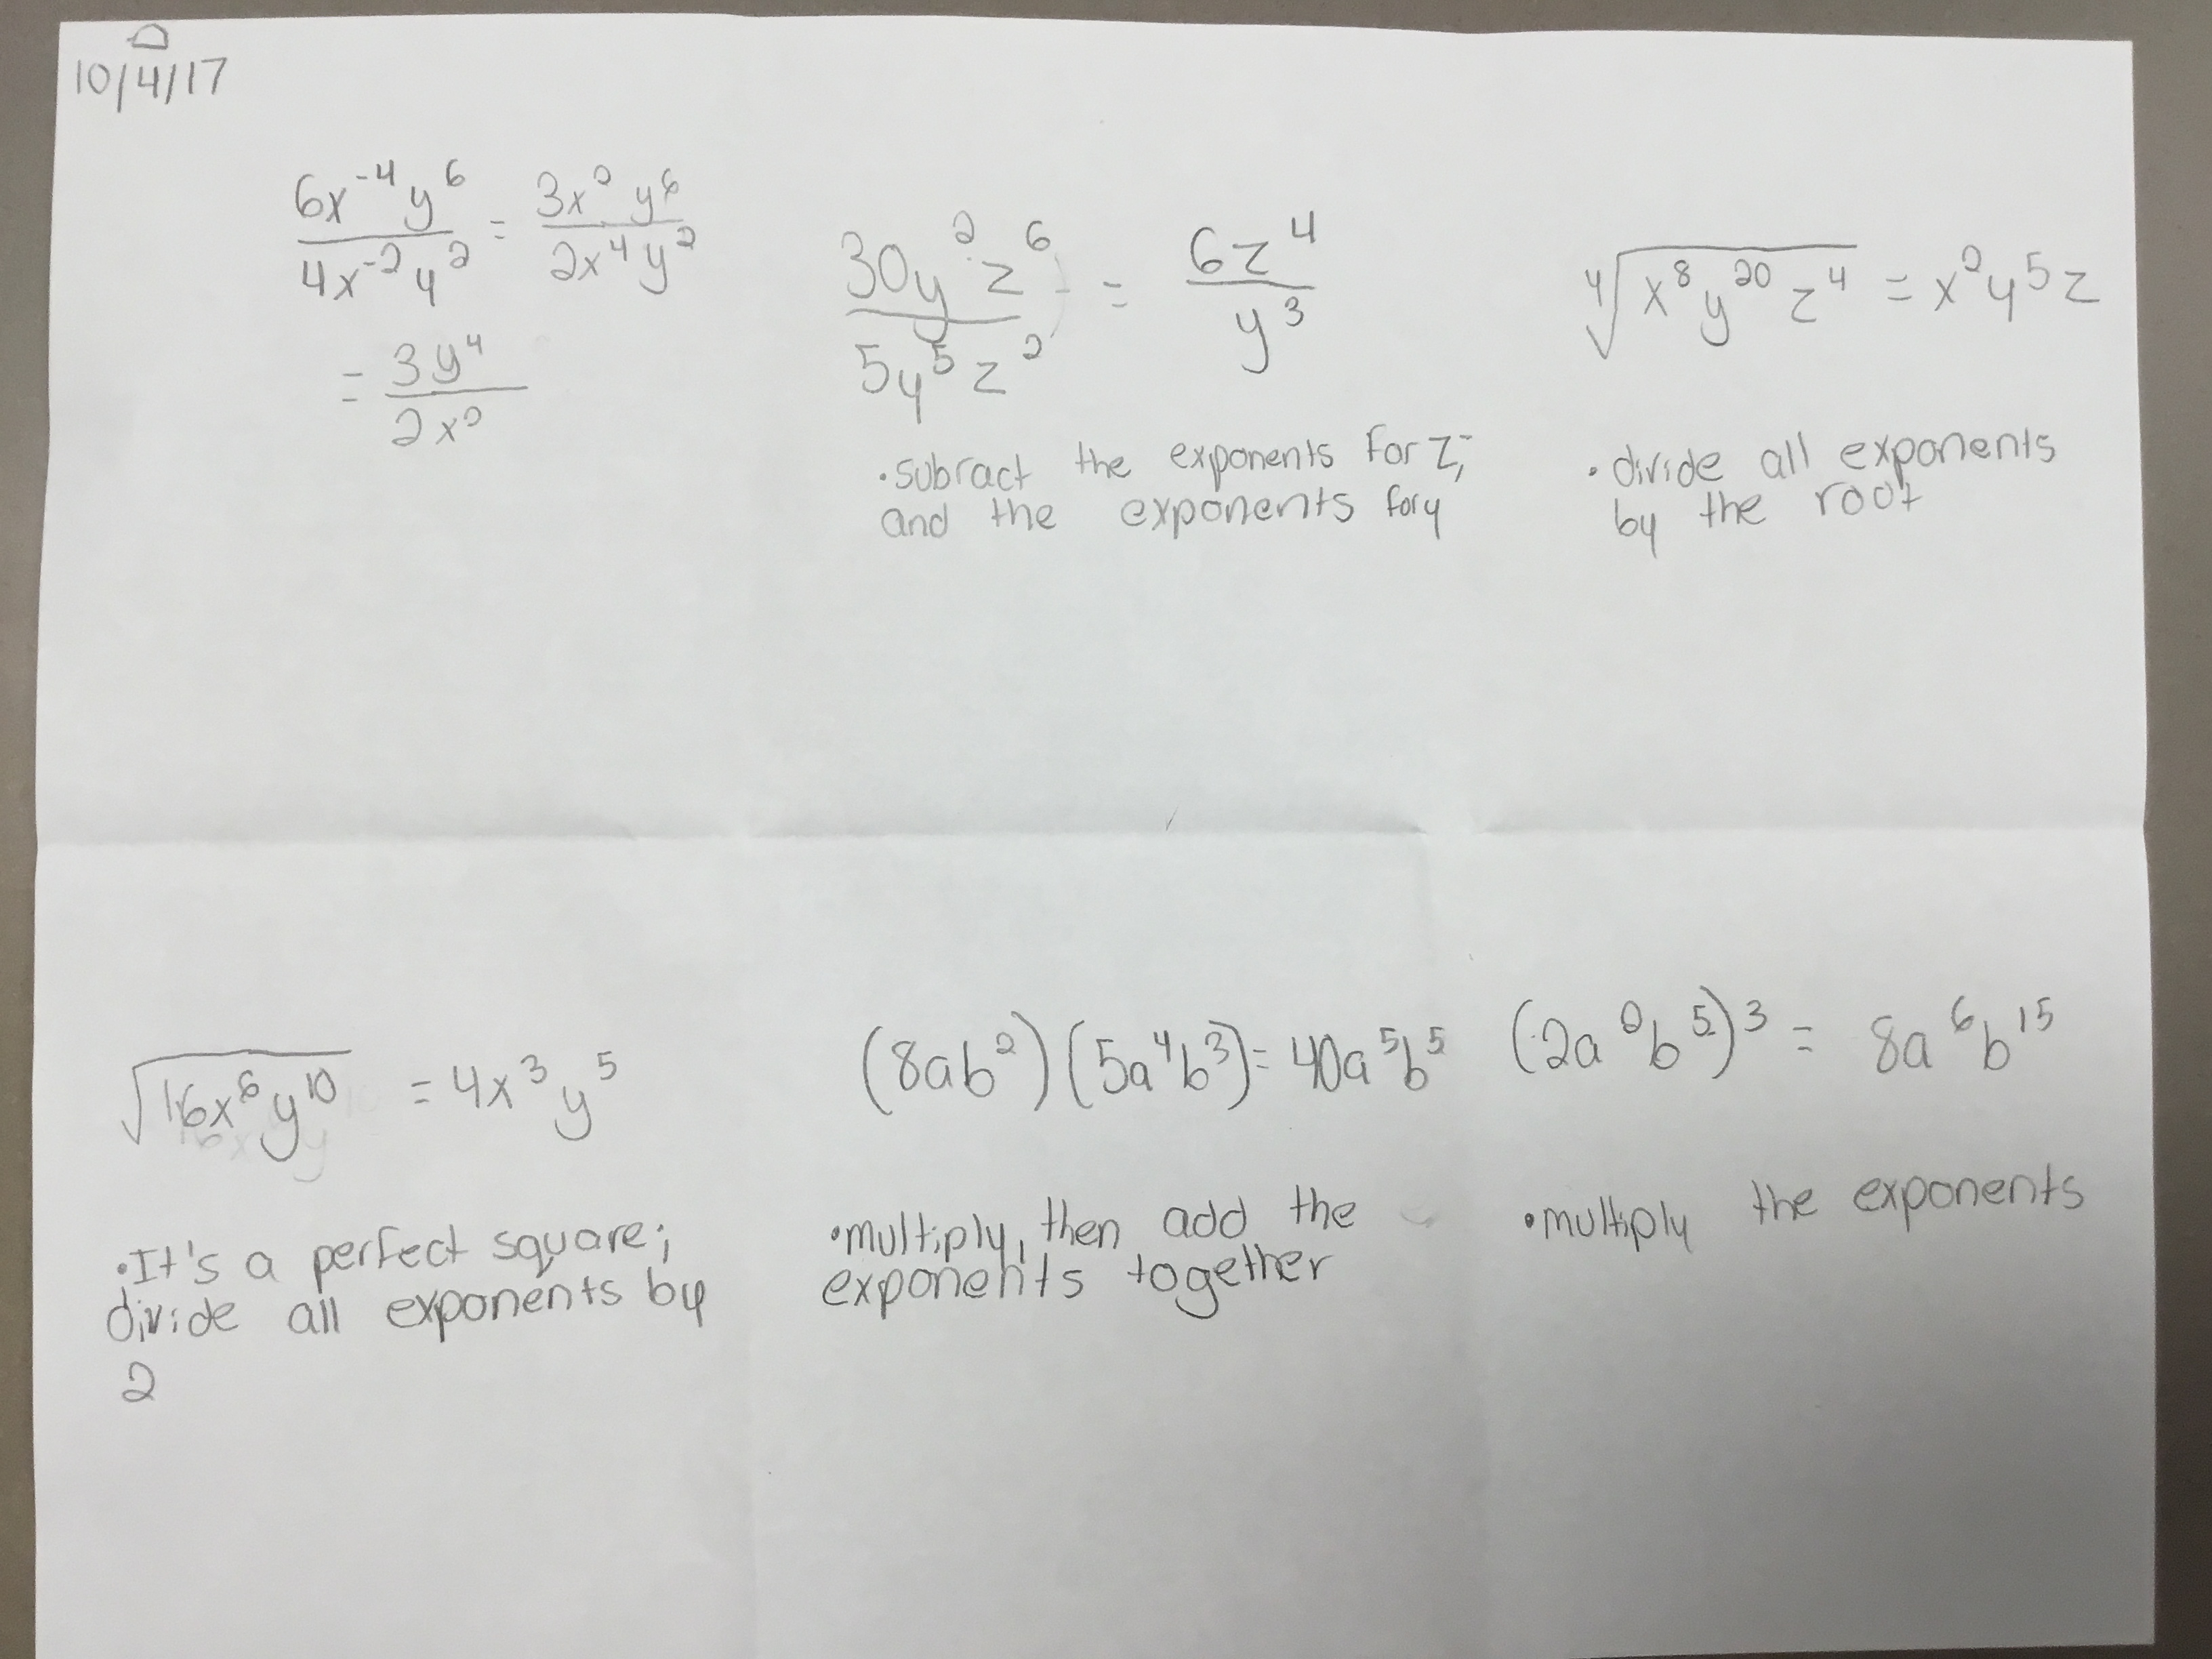 10/4/17
6x⁻⁴y⁶ / 4x⁻²y² = 3x²y⁶ / 2x⁴y²
= 3y⁴ / 2x²
30y²z⁶ / 5y⁵z² = 6z⁴ / y³
• subract the exponents for z,
and the exponents for y
⁴√(x⁸y²⁰z⁴) = x²y⁵z
• divide all exponents
by the root
√(16x⁶y¹⁰) = 4x³y⁵
• It's a perfect square;
divide all exponents by
2
(8ab²)(5a⁴b³) = 40a⁵b⁵
• multiply, then add the
exponents together
(2a²b⁵)³ = 8a⁶b¹⁵
• multiply the exponents